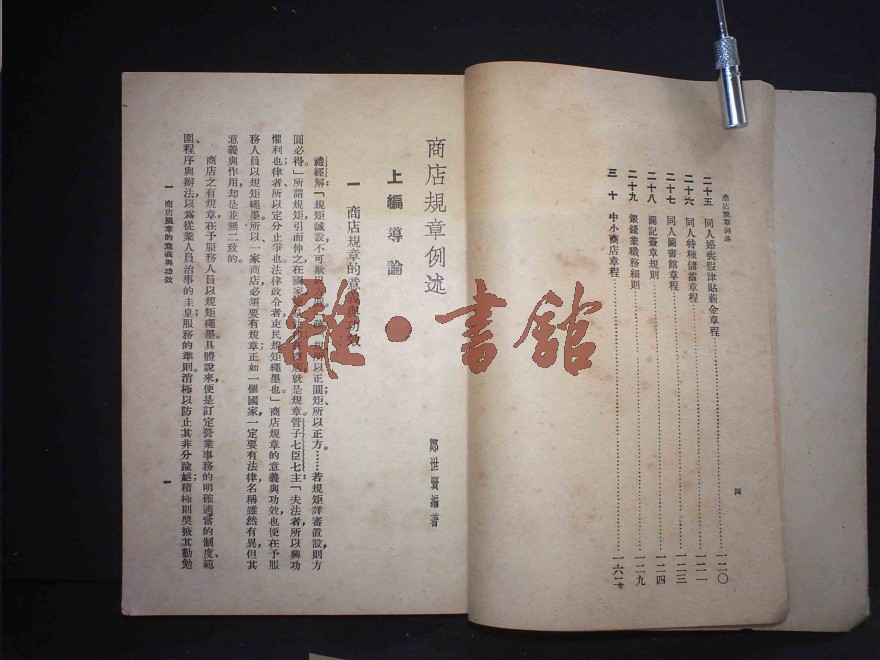 商店規章例述
二十五 同人婚喪假津貼薪金章程 一二〇
二十六 同人特種儲蓄章程 一二一
二十七 同人圖書館章程 一二三
二十八 圖記簽章規則 一二四
二十九 銀錢業職務細則 一二九
三十 中小商店章程 一六二
四
商店規章例述
鄭世賢編著
上編 導論
一 商店規章的意義與功效
禮經解「規矩誠設不可欺以方圓」 規所以正圓矩所以正方。……若規矩詳審置設則方
圓必得」所謂規矩引而伸之在國家 就是規章管子七臣七主「夫法者所以興功
懼利也律者所以定分止爭也法律政令者吏民規矩繩墨也」商店規章的意義與功效也便在予服
務人員以規矩繩墨。所以、一家商店必須要有規章正如一個國家一定要有法律名稱雖然有異但其
意義與作用却是並無二致的。
商店之有規章在予服務人員以規矩繩墨。具體說來便是訂定營業事務的明確適當的制度、範
圍、程序與辦法以爲從業人員治事的圭臬服務的準則消極以防止其非分踰越積極則獎掖其勤勉
一 商店規章的意義與功效
一
雜·書館